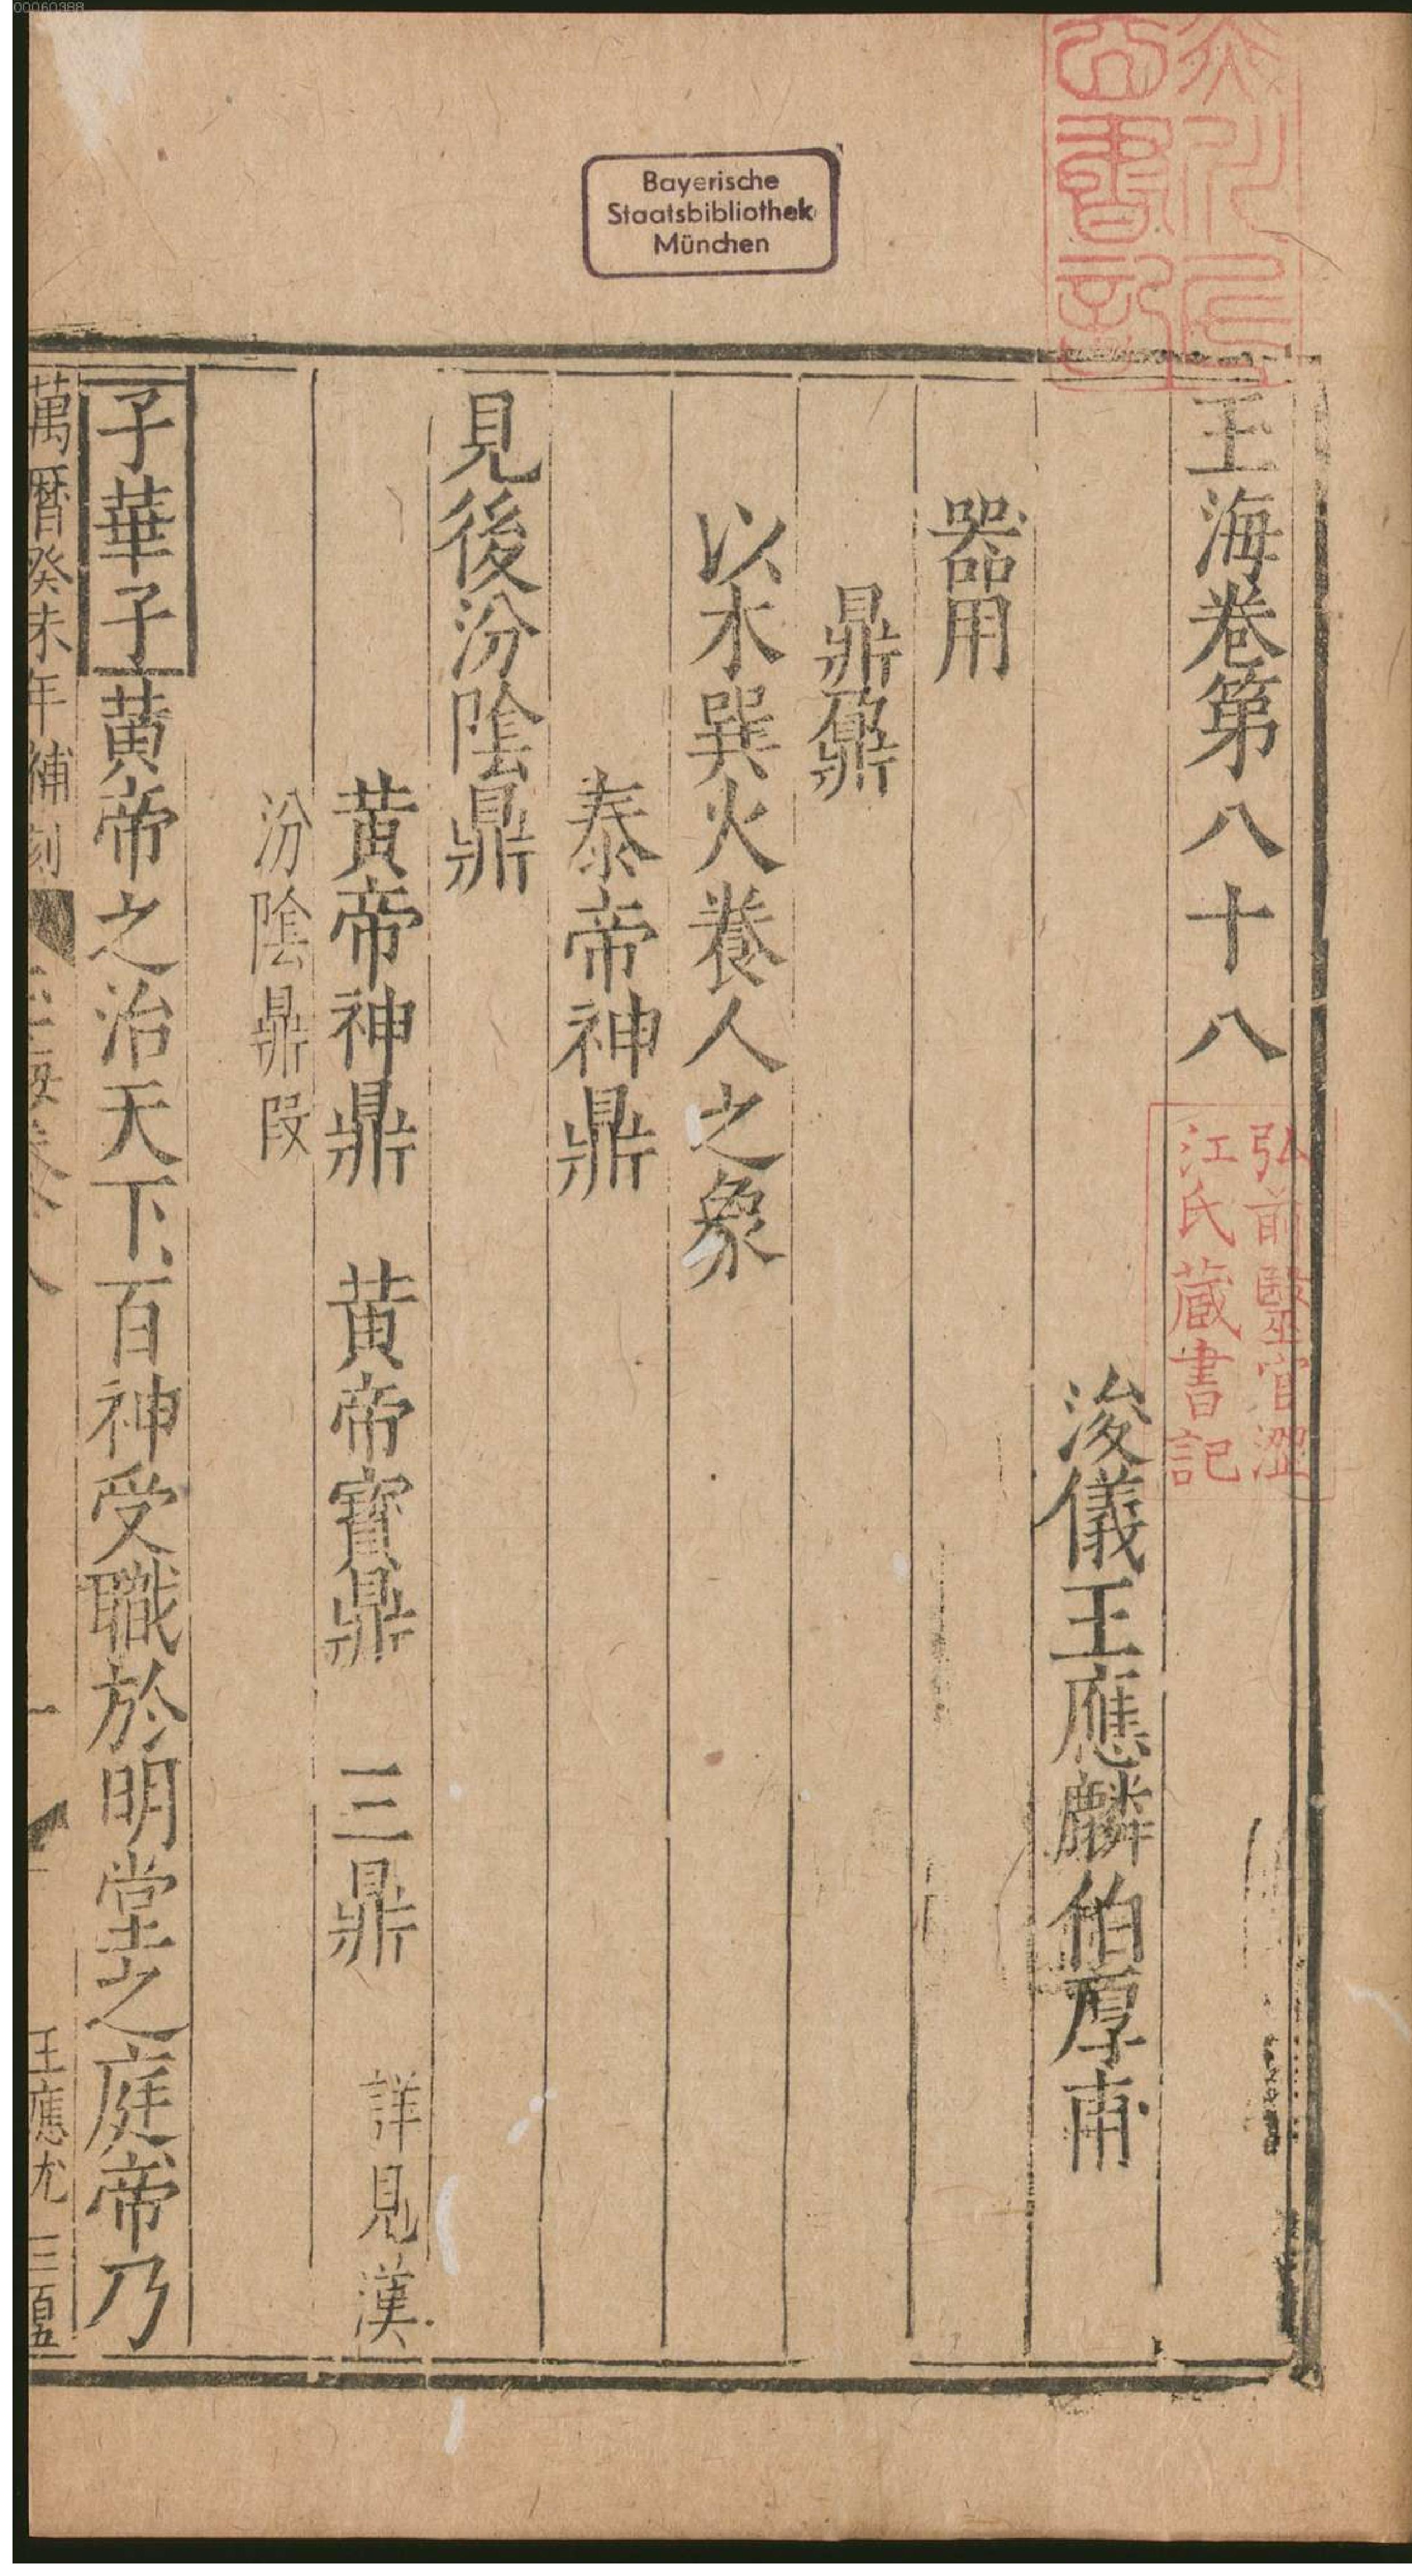 00060388
Bayerische
Staatsbibliothek
München
玉海卷第八十八
弘前醫官澀
江氏藏書記
浚儀王應麟伯厚甫
器用
鼎鼐
以木巽火養人之象
泰帝神鼎
見後汾陰鼎
黃帝神鼎　黃帝寶鼎　三鼎　詳見漢
汾陰鼎段
子華子黃帝之治天下百神受職於明堂之庭帝乃
萬曆癸未年補刻
王應尤 三百五